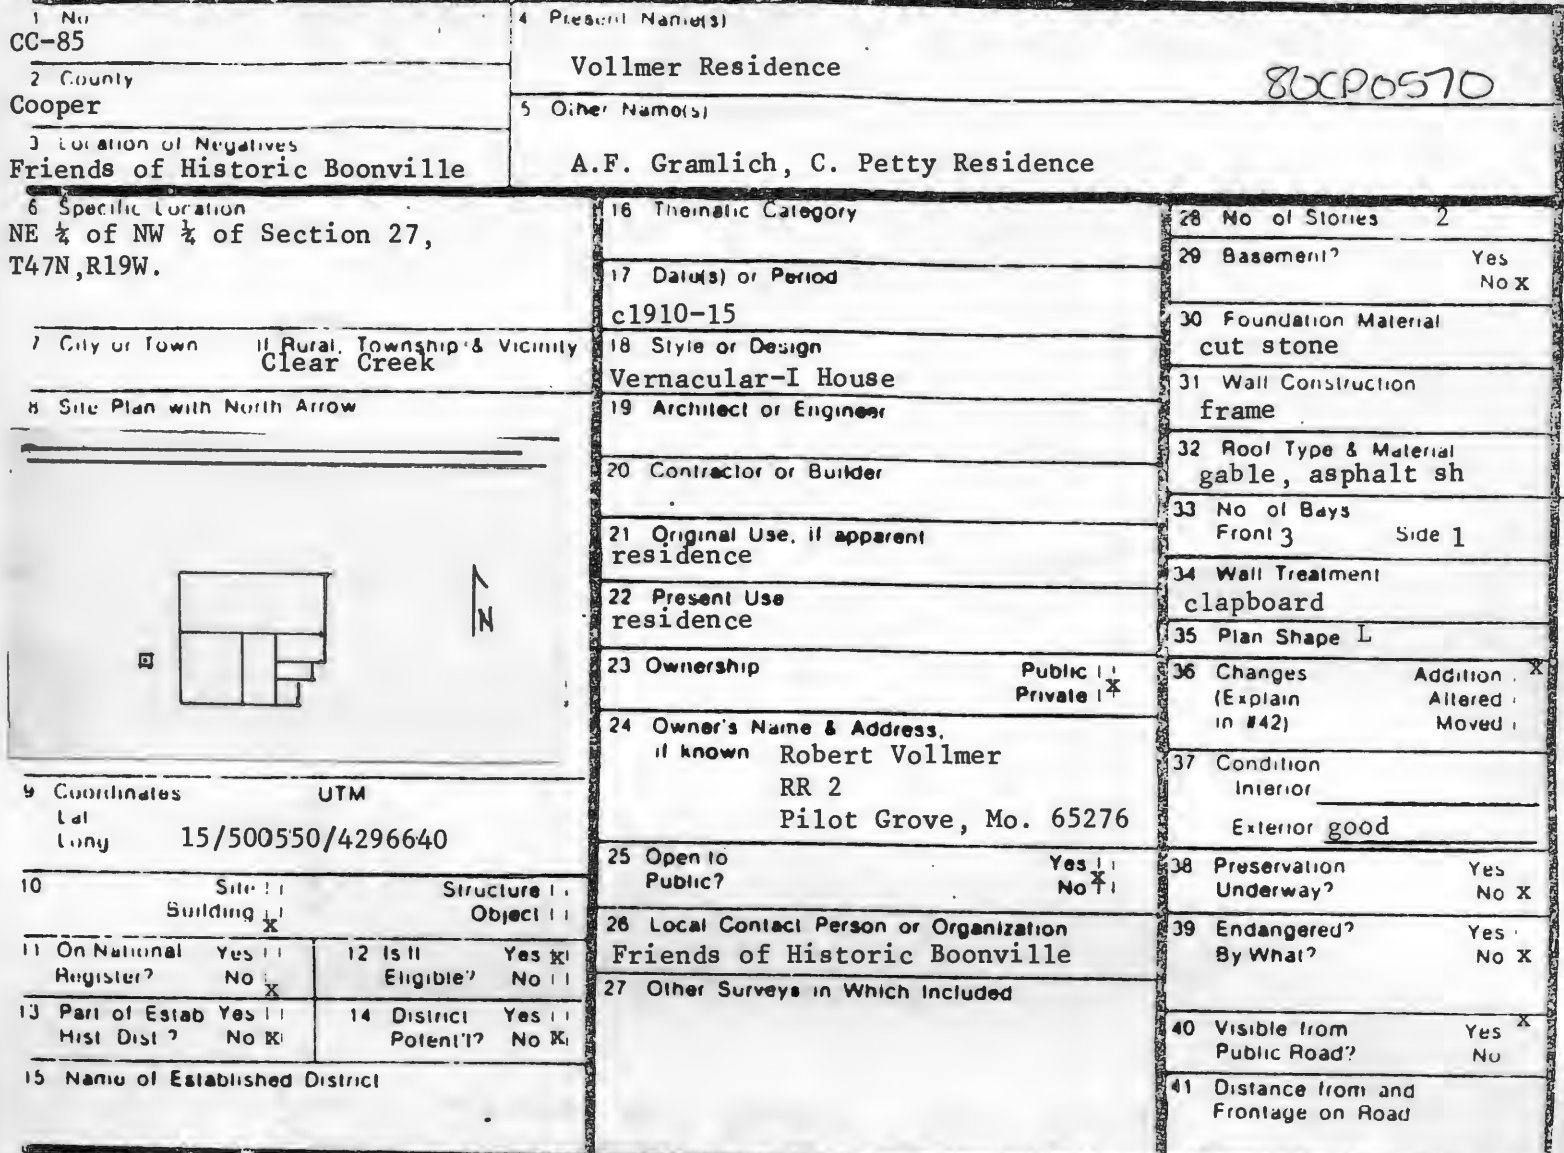 1 No
CC-85
2 County
Cooper
3 Location of Negatives
Friends of Historic Boonville
4 Present Name(s)
Vollmer Residence
80CP0570
5 Other Name(s)
A.F. Gramlich, C. Petty Residence
6 Specific Location
NE ¼ of NW ¼ of Section 27,
T47N,R19W.
7 City or Town If Rural, Township & Vicinity
Clear Creek
8 Site Plan with North Arrow
N
9 Coordinates UTM
Lat
Long 15/500550/4296640
10 Site Structure
Building X Object
11 On National Yes
Register? No X
12 Is It Yes X
Eligible? No
13 Part of Estab Yes
Hist Dist? No X
14 District Yes
Potent'l? No X
15 Name of Established District
16 Thematic Category
17 Date(s) or Period
c1910-15
18 Style or Design
Vernacular-I House
19 Architect or Engineer
20 Contractor or Builder
21 Original Use, if apparent
residence
22 Present Use
residence
23 Ownership Public
Private X
24 Owner's Name & Address,
if known Robert Vollmer
RR 2
Pilot Grove, Mo. 65276
25 Open to Yes
Public? No X
26 Local Contact Person or Organization
Friends of Historic Boonville
27 Other Surveys in Which Included
28 No of Stories 2
29 Basement? Yes
No X
30 Foundation Material
cut stone
31 Wall Construction
frame
32 Roof Type & Material
gable, asphalt sh
33 No of Bays
Front 3 Side 1
34 Wall Treatment
clapboard
35 Plan Shape L
36 Changes Addition X
(Explain Altered
in #42) Moved
37 Condition
Interior
Exterior good
38 Preservation Yes
Underway? No X
39 Endangered? Yes
By What? No X
40 Visible from Yes X
Public Road? No
41 Distance from and
Frontage on Road